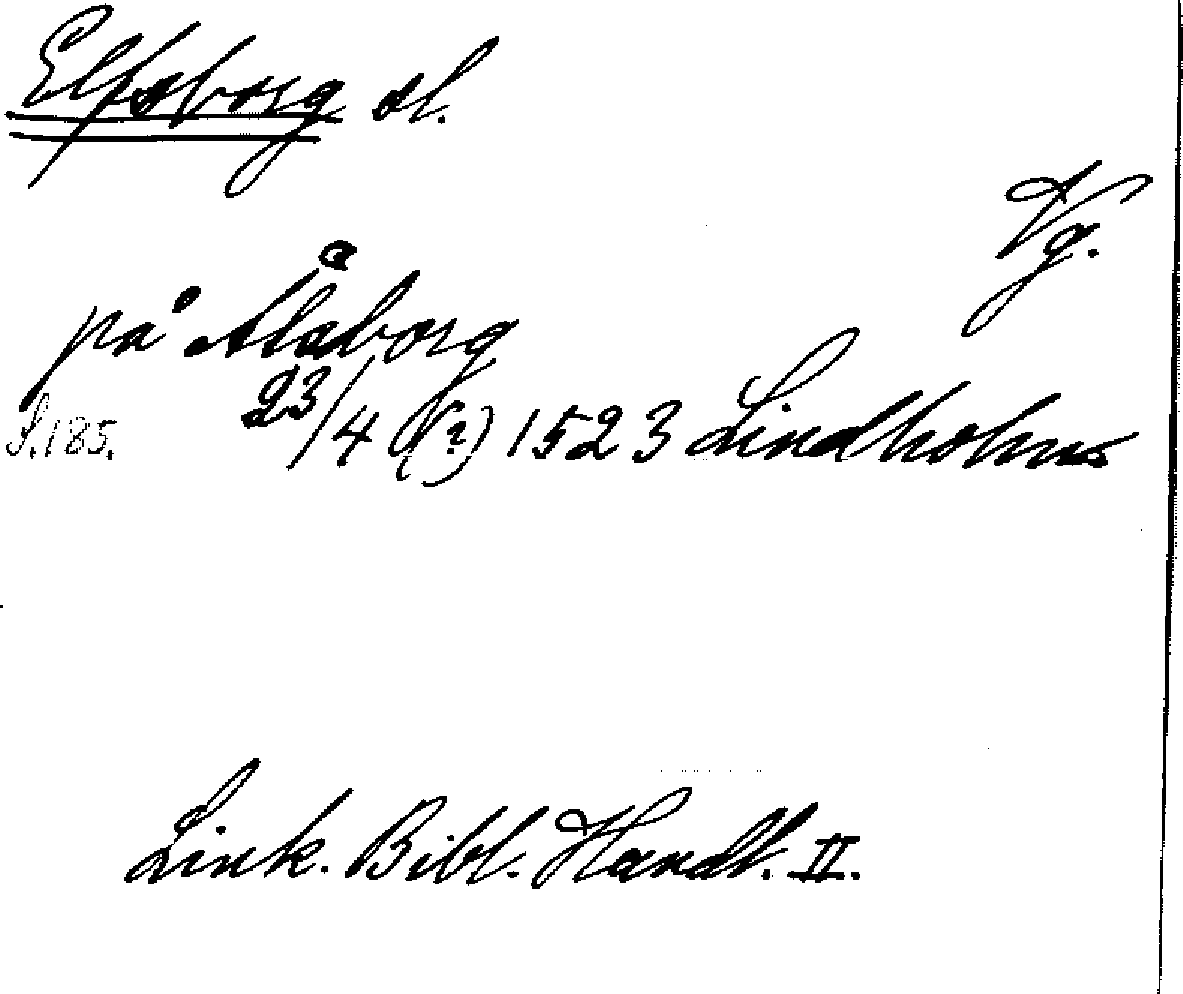 Elfsborg sl.
Vg.
på Ålsborg
S. 185. 23/4 (?) 1523 Lindholm
Link. Bibl. Handl. II.